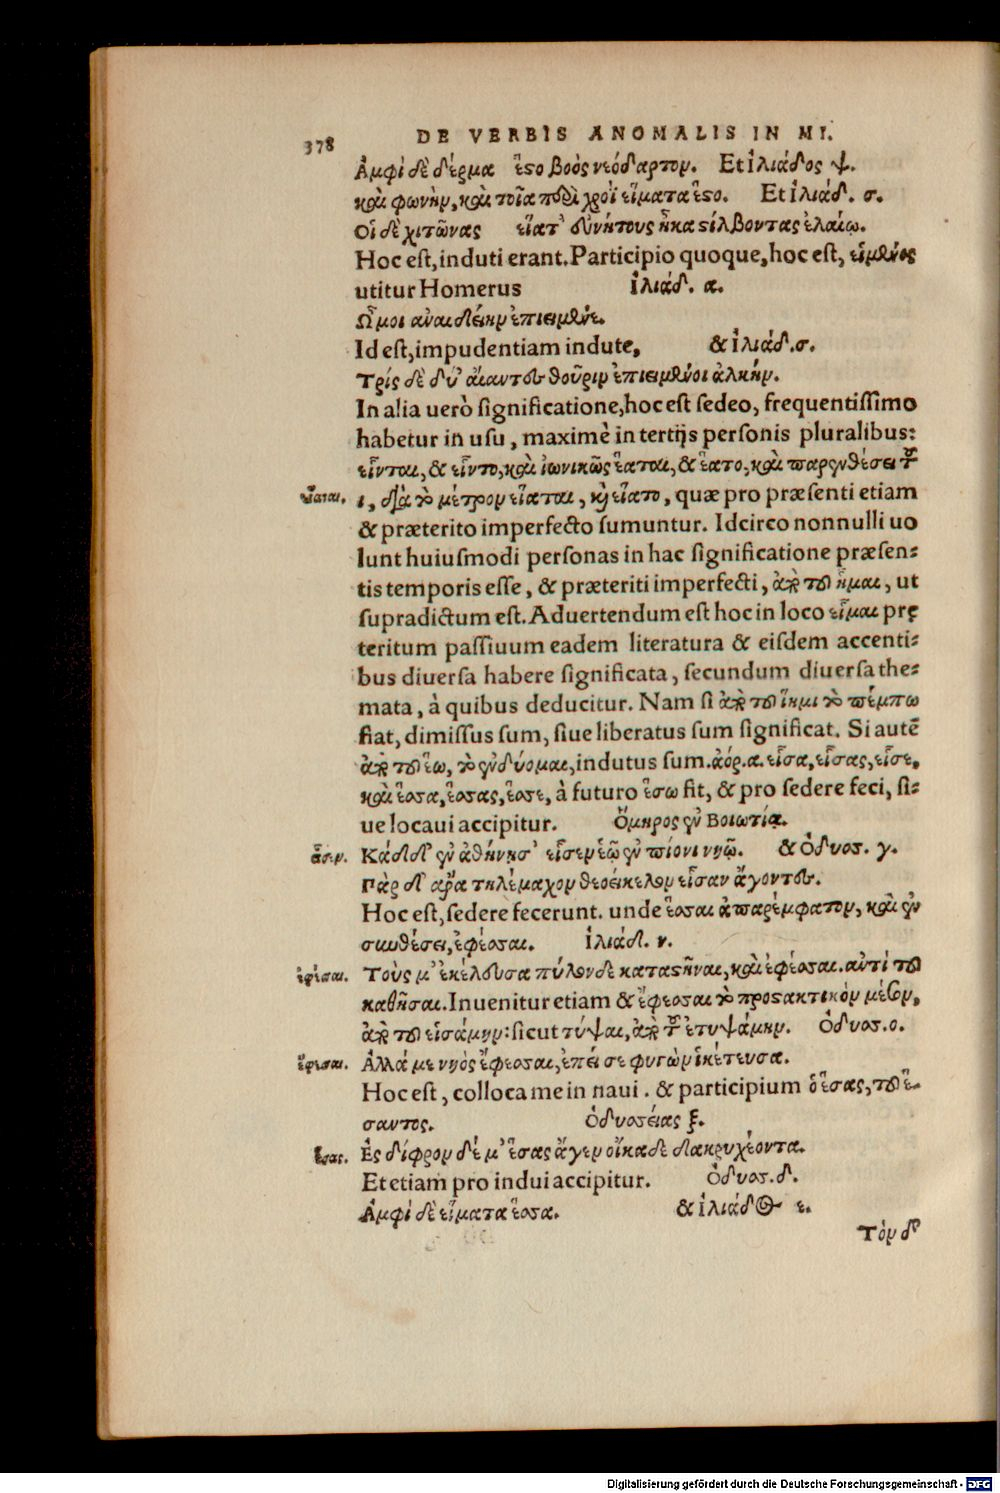 378 DE VERBIS ANOMALIS IN MI.
Ἀμφὶ δὲ δέρμα ἕστο βοὸς νεόδαρτον. Et ἰλιάδος ψ.
καὶ φωνὴν, καὶ τοῖα περὶ χροῒ εἵματα ἕστο. Et ἰλιάδ. σ.
Οἱ δὲ χιτῶνας εἵατ' ἐυννήτους ἧκα στίλβοντας ἐλαίῳ.
Hoc est, induti erant. Participio quoque, hoc est, εἱμένος
utitur Homerus ἰλιάδ. α.
Ὤ μοι ἀναιδείην ἐπιειμένε.
Id est, impudentiam indute, & ἰλιάδ. σ.
Τρίς δὲ δύ' αἴαντες θοῦριν ἐπιειμένοι ἀλκήν.
In alia uerò significatione, hoc est sedeo, frequentissimo
habetur in usu, maximè in tertijs personis pluralibus:
εἷνται, & εἷντο, καὶ ἰωνικῶς ἕαται, & ἕατο, καὶ παρενθέσει τοῦ
εἵαται. ι, διὰ τὸ μέτρον εἵαται, καὶ εἵατο, quæ pro præsenti etiam
& præterito imperfecto sumuntur. Idcirco nonnulli uo
lunt huiusmodi personas in hac significatione præsen-
tis temporis esse, & præteriti imperfecti, ἀπὸ τοῦ ἧμαι, ut
supradictum est. Aduertendum est hoc in loco εἷμαι prę
teritum passiuum eadem literatura & eisdem accenti-
bus diuersa habere significata, secundum diuersa the-
mata, à quibus deducitur. Nam si ἀπὸ τοῦ ἵημι τὸ πέμπω
fiat, dimissus sum, siue liberatus sum significat. Si autē
ἀπὸ τοῦ ἕω, τὸ ἐνδύομαι, indutus sum. ἀόρ. α. εἷσα, εἷσας, εἷσε,
καὶ ἕσσα, ἕσσας, ἕσσε, à futuro ἕσω fit, & pro sedere feci, si-
ue locaui accipitur. Ὅμηρος ἐν Βοιωτίᾳ.
εἷσεν. Κάδδ' ἐν ἀθήνῃσ' εἷσεν ἑῷ ἐν πίονι νηῷ. & Ὀδυσσ. γ.
Πὰρ δ' ἄρα τηλέμαχον θεοείκελον εἷσαν ἄγοντες.
Hoc est, sedere fecerunt. unde ἕσσαι ἀπαρέμφατον, καὶ ἐν
συνθέσει, ἐφέσσαι. ἰλιάδ. ν.
ἐφέσσαι. Τοὺς μ' ἐκέλευσα πύλονδε καταστῆναι, καὶ ἐφέσσαι. αὐτὶ τοῦ
καθῆσαι. Inuenitur etiam & ἔφεσσαι τὸ προστακτικὸν μέσον,
ἀπὸ τοῦ εἰσάμην: sicut τύψαι, ἀπὸ τοῦ ἐτυψάμην. Ὀδυσσ. ο.
ἔφεσσαι. Ἀλλά με νηὸς ἔφεσσαι, ἐπεί σε φυγὼν ἱκέτευσα.
Hoc est, colloca me in naui. & participium ὁ ἕσας, τοῦ ἕ-
σαντος. Ὀδυσσείας ξ.
ἕσας. Ἐς δίφρον δέ μ' ἕσας ἄγεν οἴκαδε δακρυχέοντα.
Et etiam pro indui accipitur. Ὀδυσσ. δ.
Ἀμφὶ δὲ εἵματα ἕσσα. & ἰλιάδος ε.
Τὸν δ'
Digitalisierung gefördert durch die Deutsche Forschungsgemeinschaft - DFG